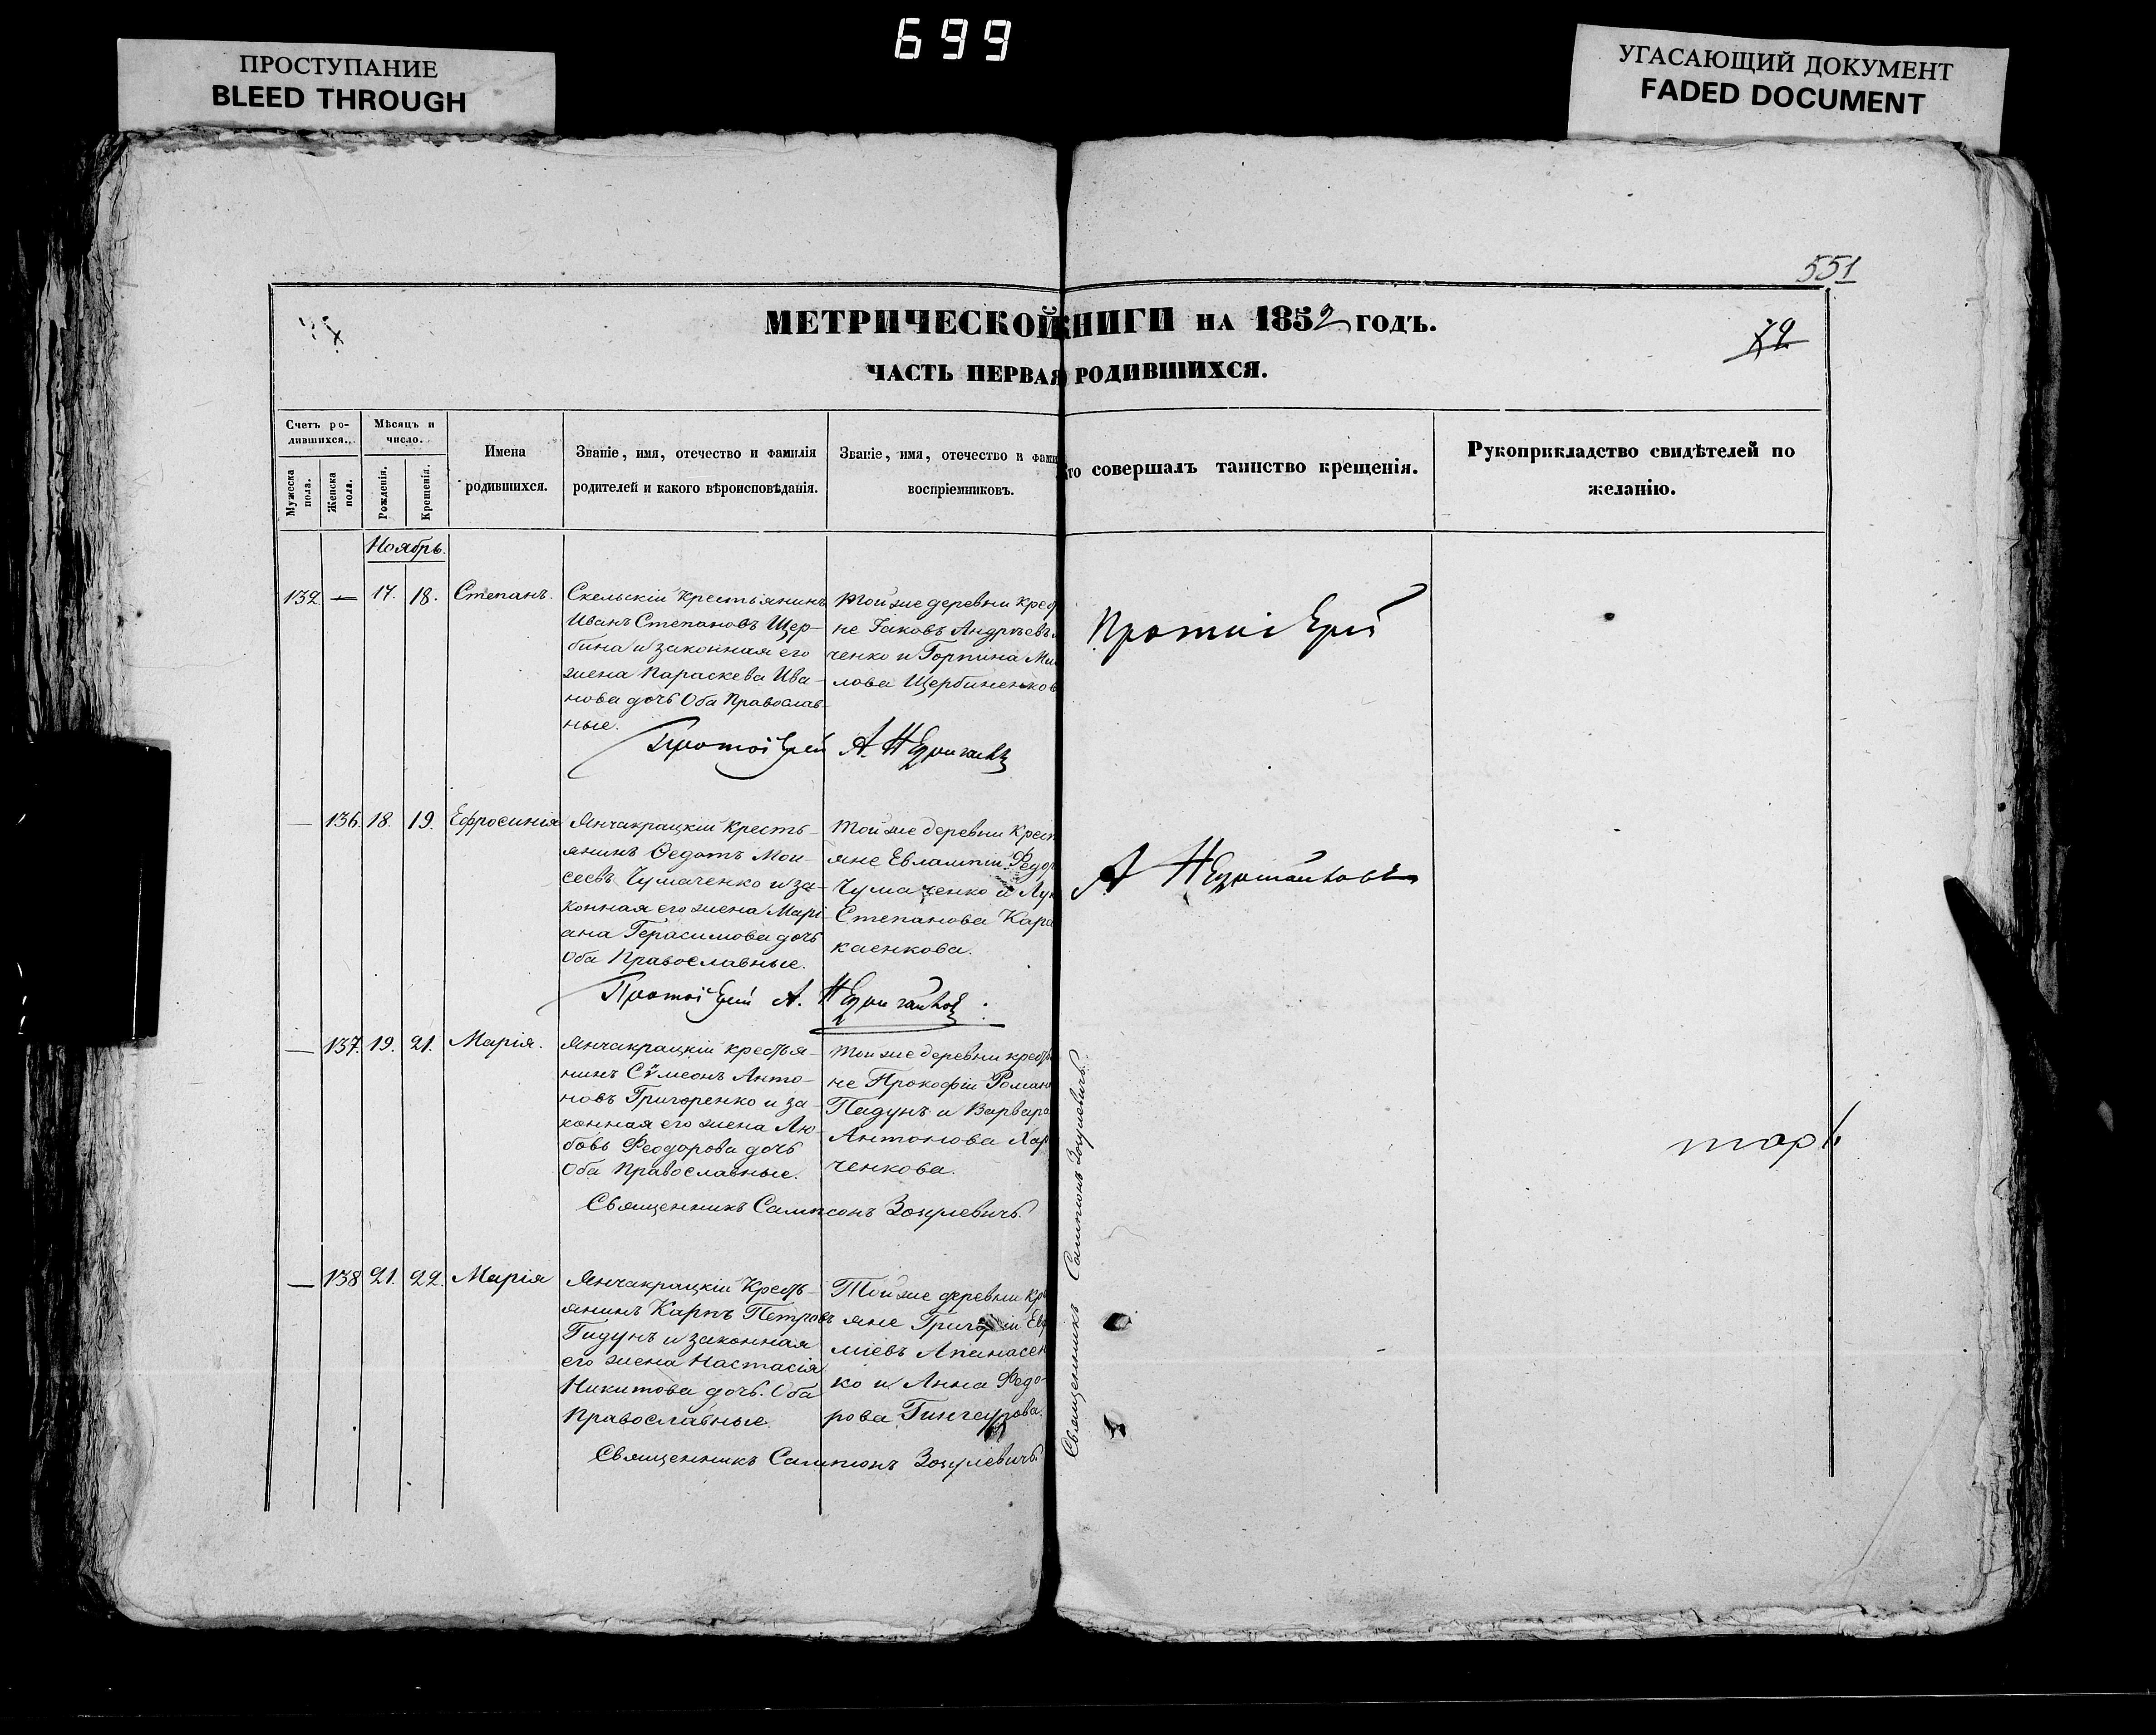 699
ПРОСТУПАНИЕ
BLEED THROUGH
УГАСАЮЩИЙ ДОКУМЕНТ
FADED DOCUMENT
551
МЕТРИЧЕСКОЙ КНИГИ НА 1852 ГОДЪ.
72
ЧАСТЬ ПЕРВАЯ РОДИВШИХСЯ.
Счетъ ро-
дившихся.
Мужеска пола.
Женска пола.
Мѣсяцъ и
число.
Рожденія.
Крещенія.
Имена
родившихся.
Званіе, имя, отечество и фамилія
родителей и какого вѣроисповѣданія.
Званіе, имя, отечество и фами
воспріемниковъ.
то совершалъ таинство крещенія.
Рукоприкладство свидѣтелей по
желанію.
Ноябрь.
132. — 17. 18. Степанъ.
Скельскій Крестьянинъ
Иванъ Степановъ Щер-
бина и законная его
жена Параскева Ива-
нова дочь Оба Православ-
ные.
Той же деревни Крес
не Іаковъ Андреевъ
ченко и Горпина Ми
лова Щербиненков
Протоіерей
Протоіерей А.
— 136. 18. 19. Ефросинія
Янчакрацкій Кресть-
янинъ Ѳедотъ Мои-
сеевъ Чумаченко и за-
конная его жена Марі-
ана Герасимова дочь
Оба Православные.
Той же деревни Крест
яне Евлампій Федо
Чумаченко и Лук
Степанова Кара
каенкова.
А
Протоіерей А.
— 137. 19. 21. Марія.
Янчакрацкій крестья-
нинъ Сѵмеонъ Анто-
новъ Григоренко и за-
конная его жена Лю-
бовь Феодорова дочь
Оба Православные.
Той же деревни крестья
не Прокофій Роман
Падунъ и Варвара
Антонова Хар
ченкова.
Священникъ Сампсонъ Зоцулевичъ.
— 138 21. 22. Марія
Янчакрацкій Кресть-
янинъ Карпъ Петровъ
Гидунъ и законная
его жена Настасія
Никитова дочь. Оба
Православные.
Той же деревни Кре
яне Григорій Евф
міевъ Апанасен
ко и Анна Федо-
рова
Священникъ Сампсонъ Зоцулевичъ.
Священникъ Сампсонъ Зоцулевичъ.